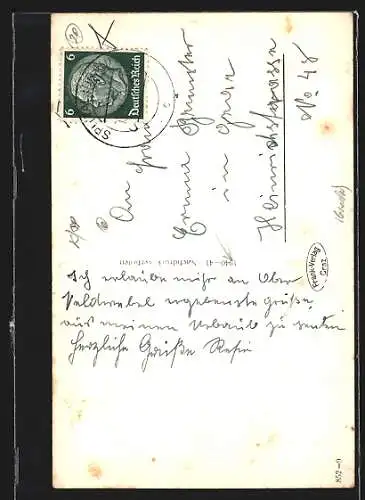 6
6
Deutsches Reich
20
An Frau
in Graz
Heinrichstrasse
No 48
1940-41 Nachdruck verboten
Frank-Verlag
Graz
Ich erlaube mir an Ober
Feldwebel ergebenste Grüße
aus meinem Urlaub zu senden
Herzliche Grüße Resi
852-0